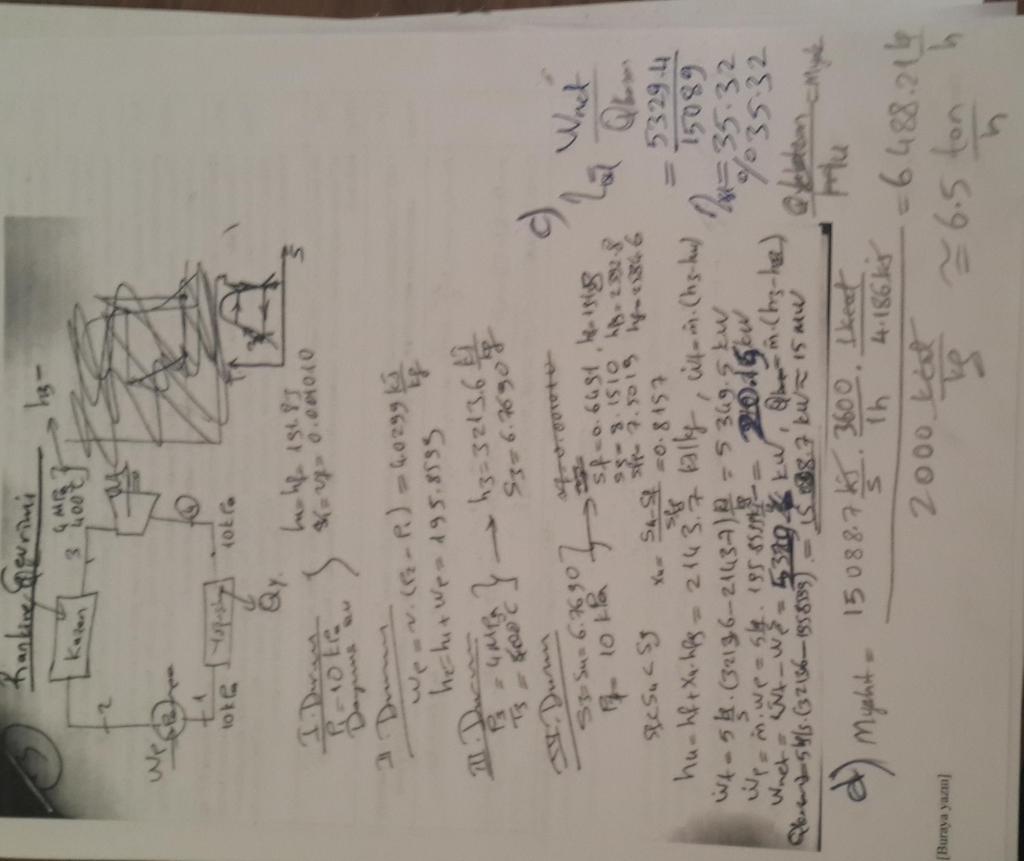 3) Rankine Çevrimi
Kazan
3 4 MPa
400°C
h3-
2
Wp
1
10 kPa
Qy.
4
10 kPa
T
S
I. Durum
P1 = 10 kPa
Doymuş sıvı
h1=hf=191.8
v1=vf=0.001010
II. Durum
wp = v.(P2-P1) = 4.0299 kJ/kg
h2=h1+wp = 195.8599
III. Durum
P3 = 4 MPa
→ h3=3213.6 kJ/kg
S3=6.7690
IV. Durum
S3=S4=6.7690
P4= 10 kPa
→
sf=0.6491, hf=191.8
sg=8.1510 hfg=2392.8
sfg=7.5019 hg=2584.6
sf<s4<sg x4= s4-sf/sfg =0.8157
h4=hf+x4.hfg= 2143.7 kJ/kg, ẇt=ṁ.(h3-h4)
ẇt = 5 kg/s.(3213.6-2143.7) = 5349.5 kW
ẇp = ṁ.wp = 5 = 20.15 kW
Wnet= ẇt-ẇp = kW, = ṁ.(h3-h2)
= 5 kg/s.(3213.6-195.8599) = 15088.7 kW ≈ 15 MW
c)
η = Wnet
= 5329.4
15089
= 35.32
%35.32
d) Myakıt= 15088.7 kJ/s . 3600 s/1h . 1kcal/4.186kJ
2000 kcal/kg
= 6488.21 kg/h
≅ 6.5 ton/h
[Buraya yazın]